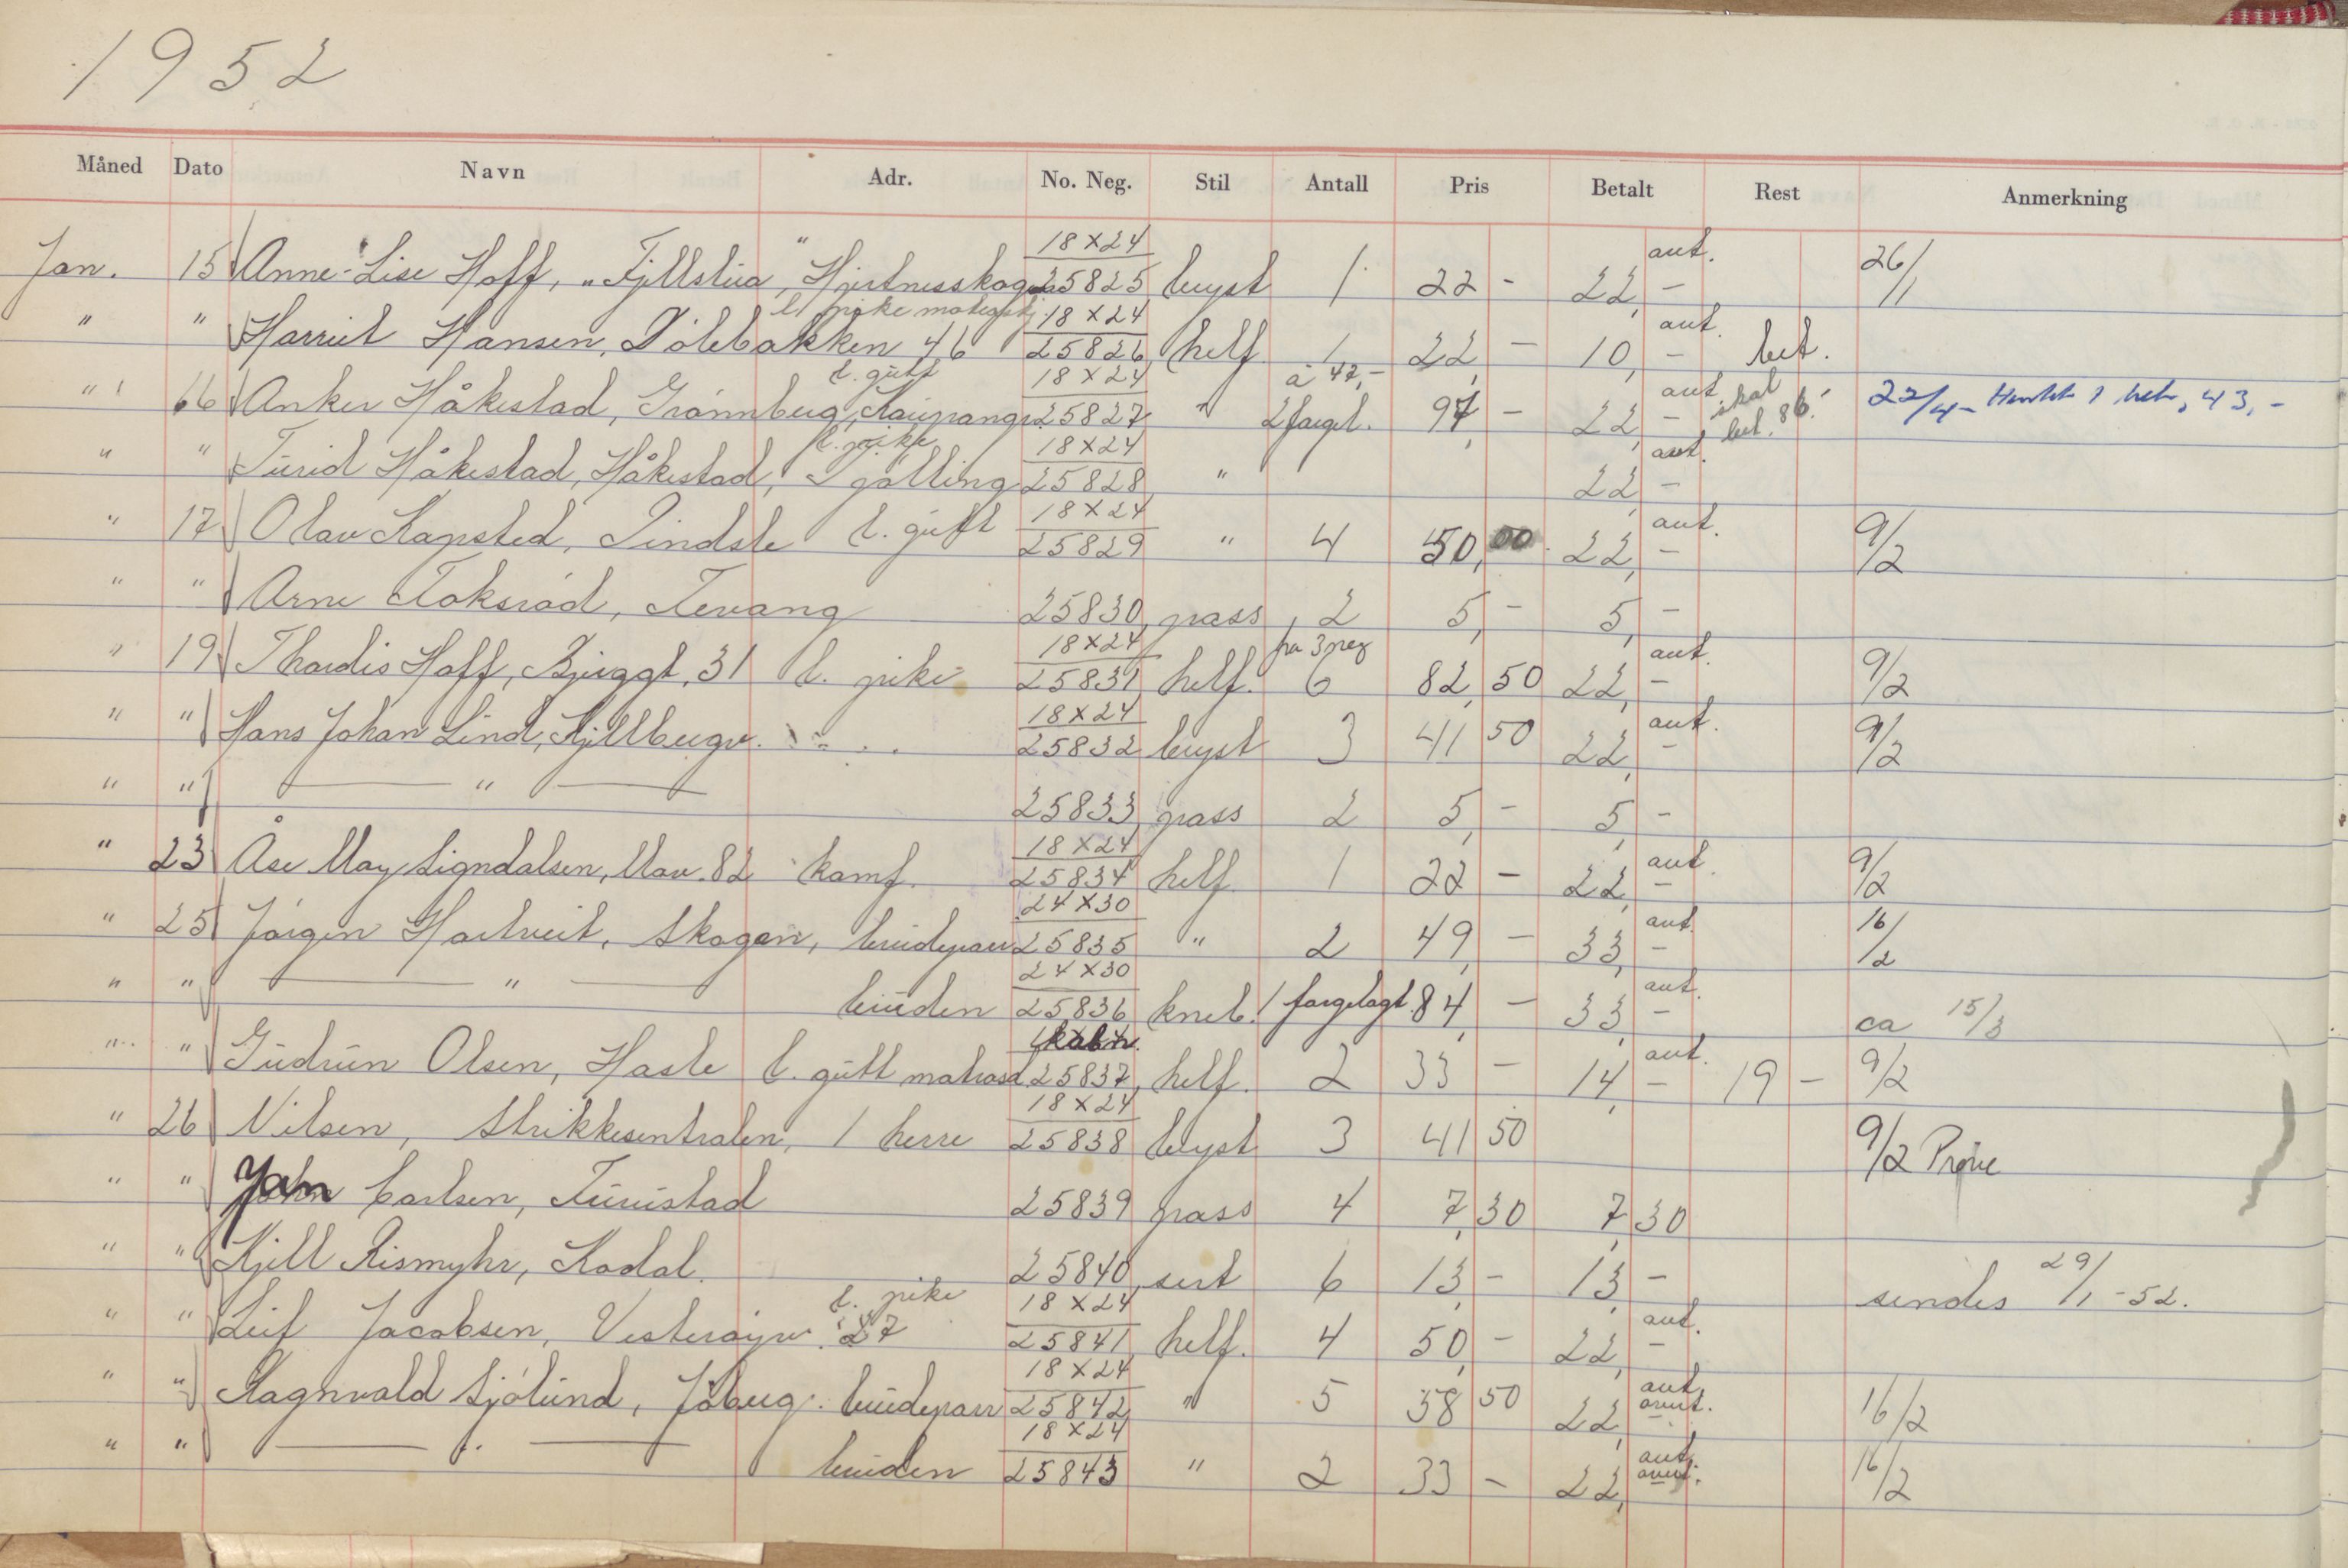 1952
Måned Dato Navn Adr. No. Neg. Stil Antall Pris Betalt Rest Anmerkning
Jan. 15 Anne-Lise Hoff, "Fjellstua", Hjertnesskogen 18x24 25825 byst 1 22 - 22,- aut. 26/1
" " Harriet Hansen, Dölebakken 46 l. pike 18x24 25826 helf 1 22,- 10,- aut. bet.
" 16 Anker Håkestad, Grønnberg, Kaupanger l. gutt 18x24 25827 " à 47,- 2 fargel. 94,- 22,- aut. skal bet. 86.- 22/4- Hentet 1 bet. 43,-
" " Turid Håkestad, Håkestad, Tjølling l. pike 18x24 25828 " 22,- aut.
" 17 Olav Kapsted, Lindsle l. gutt 18x24 25829 " 4 50,00 22,- aut. 9/2
" " Arne Toksröd, Tevang 25830 pass 2 5,- 5,-
" 19 Thordis Hoff, Bjerggt. 31 l. pike 18x24 25831 helf. fra 3 neg 6 82,50 22,- aut. 9/2
" " Hans Johan Lind, Kjellbergv. 18x24 25832 byst 3 41 50 22,- aut. 9/2
" " — " — 25833 pass 2 5,- 5,-
" 23 Åse May Signdalsen, Mav. 82 konf. 18x24 25834 helf 1 22 - 22,- aut. 9/2
" 25 Jörgen Hartveit, Skogen, brudepar 24x30 25835 " 2 49,- 33,- aut. 16/2
" " — " — bruden 24x30 25836 kneb. 1 fargelagt 84,- 33,- aut. ca 15/3
" " Gudrun Olsen, Hasle l. gutt matros kabn. 25837 helf. 2 33 - 14,- aut. 19 - 9/2
" 26 Nilsen, Strikkesentralen, 1 herre 18x24 25838 byst 3 41 50 9/2 Pröve
" " Jan Carlsen, Furustad 25839 pass 4 7,30 7,30
" " Kjell Rismyhr, Kodal. 25840 sert 6 13,- 13,- sendes 29/1-52.
" " Leif Jacobsen, Vesteröyv. 27 l. pike 18x24 25841 helf. 4 50,- 22,- aut.
" " Ragnvald Sjölund, Jåberg. brudepar 18x24 25842 " 5 58 50 22,- aut. 16/2
" " — " — bruden 18x24 25843 " 2 33 - 22,- aut. 16/2